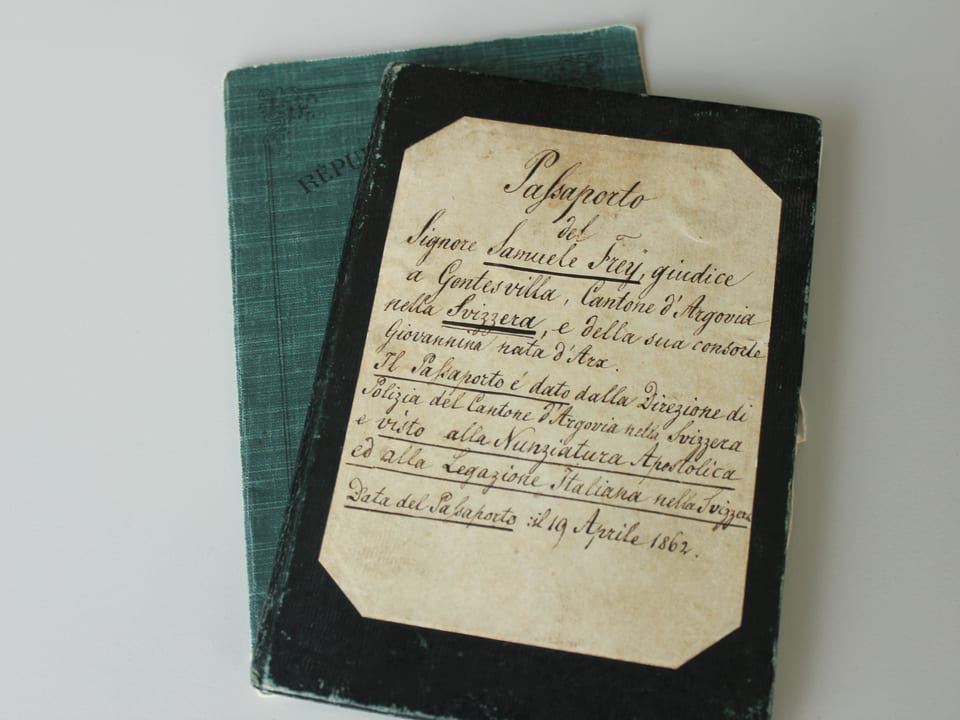 RÉPU
Paſsaporto
del
Signore Samuele Freÿ, giudice
a Gontesvilla, Cantone d'Argovia
nella Svizzera, e della sua consorte
Giovannina nata d'Arx.
Il Paſsaporto é dato dalla Direzione di
Polizia del Cantone d'Argovia nella Svizzera
e visto alla Nunziatura Apostolica
ed alla Legazione Italiana nella Svizzera
Data del Paſsaporto : il 19 Aprile 1862.